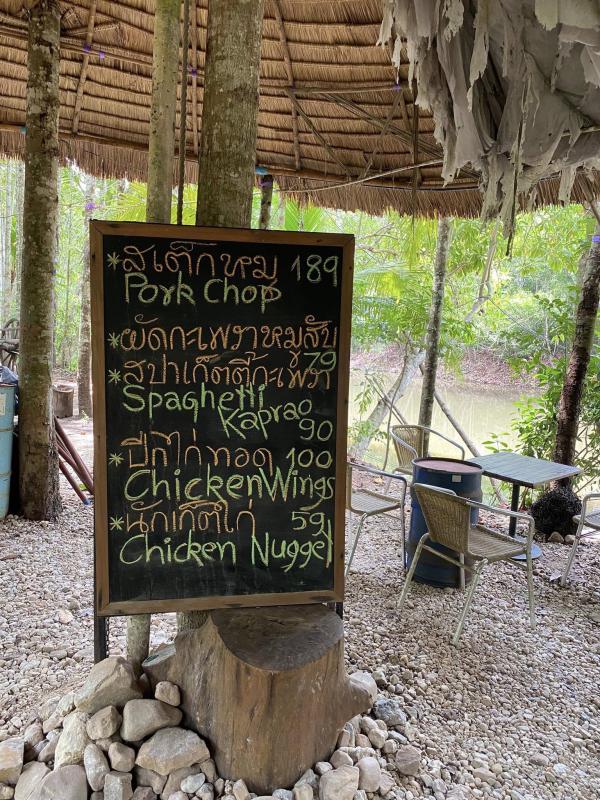 *สเต็กหมู 189
Pork Chop
*ผัดกะเพราหมูสับ
79
*สปาเก็ตตี้กะเพรา
Spaghetti
Kaprao
90
*ปีกไก่ทอด 100
Chicken Wings
*นักเก็ตไก่ 59
Chicken Nugget